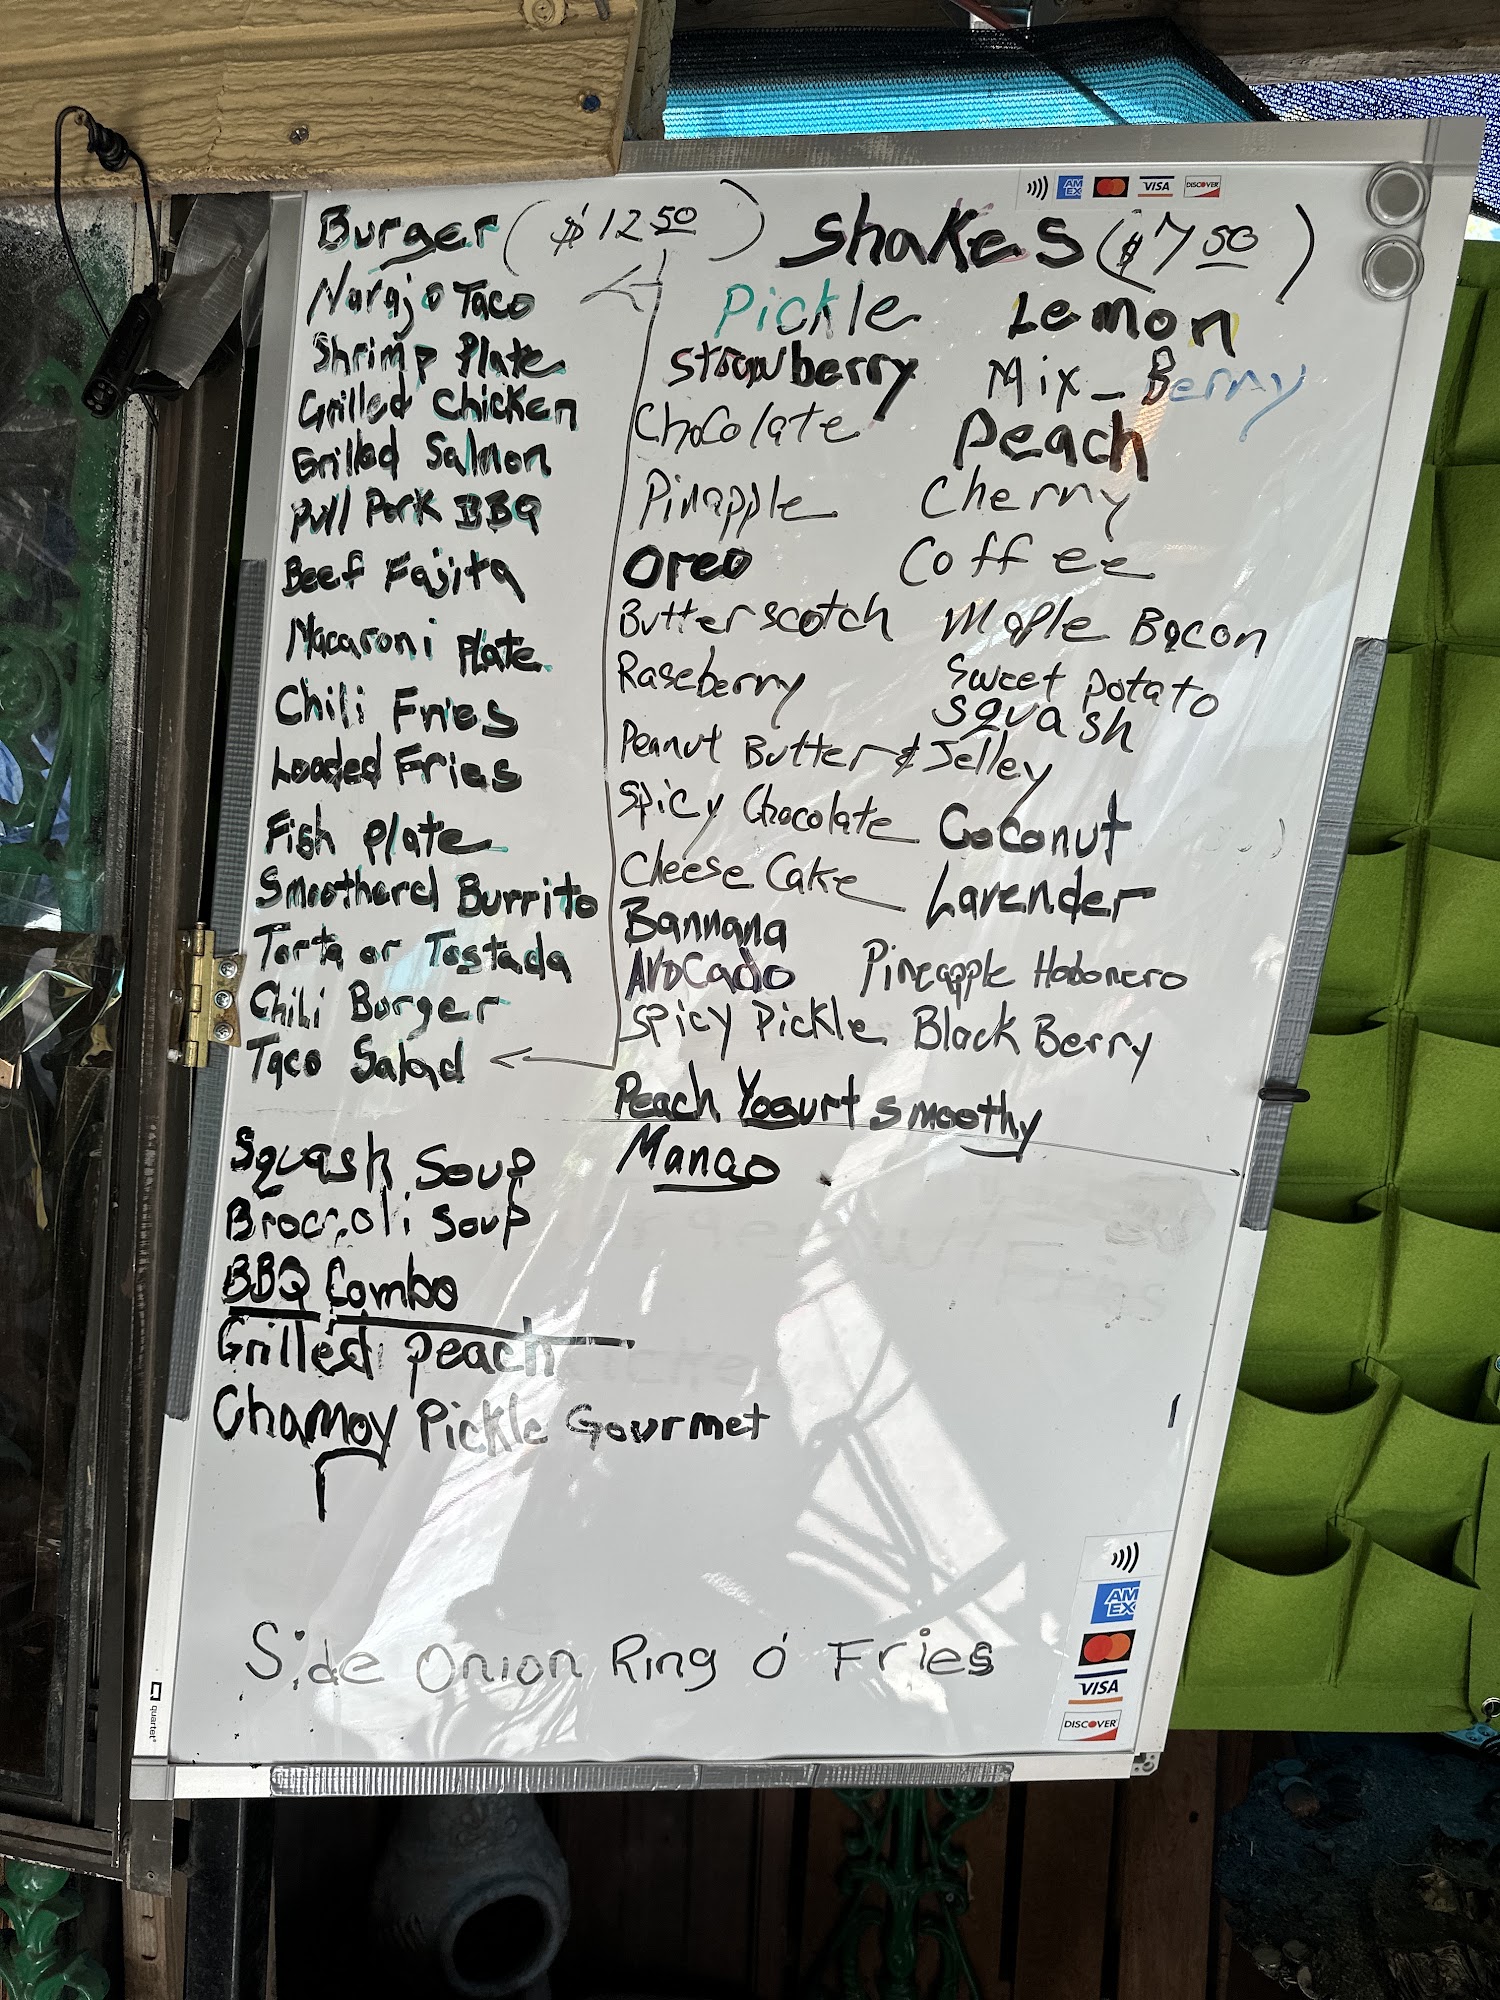 AM EX VISA DISCOVER
Burger ($12 50)
Navajo Taco
Shrimp Plate
Grilled Chicken
Grilled Salmon
Pull Pork BBQ
Beef Fajita
Macaroni Plate
Chili Fries
Loaded Fries
Fish Plate
Smoothered Burrito
Torta or Tostada
Chili Burger
Taco Salad
Squash Soup
Broccoli Soup
BBQ Combo
Grilled Peach
Chamoy Pickle Gourmet
Shakes ($7 50)
Pickle Lemon
Strawberry Mix-Berry
Chocolate Peach
Pinapple Cherry
Oreo Coffee
Butterscotch Maple Bacon
Raseberry Sweet Potato
Squash
Peanut Butter & Jelley
Spicy Chocolate Coconut
Cheese Cake Lavender
Bannana
Avocado Pineapple Habonero
Spicy Pickle Black Berry
Peach Yogurt Smoothy
Mango
Side Onion Ring ó Fries
AM EX
VISA
DISCOVER
quartet